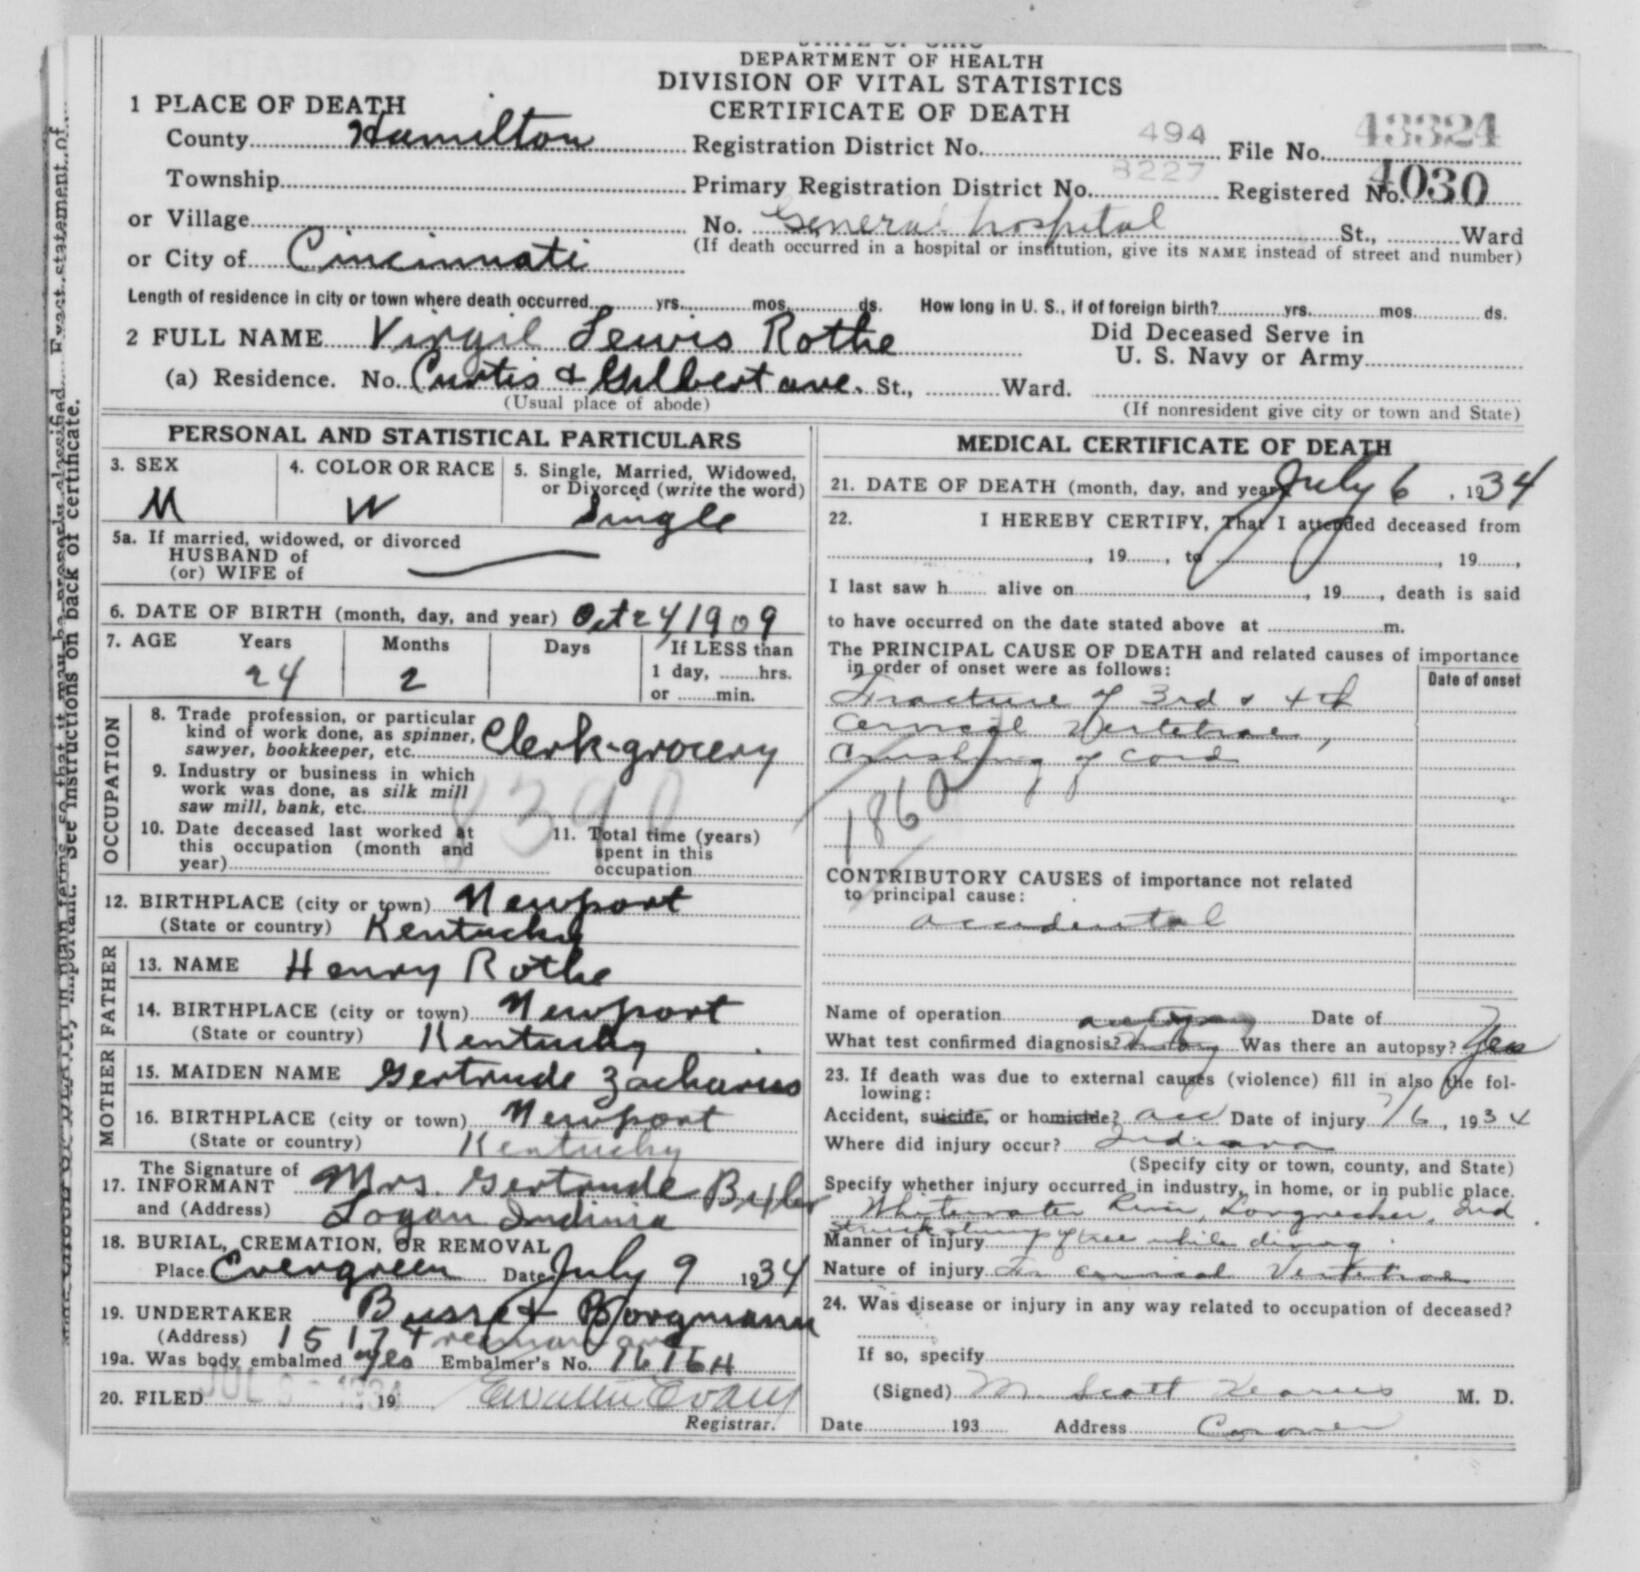 STATE OF OHIO
DEPARTMENT OF HEALTH
DIVISION OF VITAL STATISTICS
CERTIFICATE OF DEATH
1 PLACE OF DEATH
County Hamilton
Registration District No. 494 File No. 43324
Township
Primary Registration District No. 8227 Registered No. 4030
or Village
No. General hospital St., Ward
(If death occurred in a hospital or institution, give its NAME instead of street and number)
or City of Cincinnati
Length of residence in city or town where death occurred yrs. mos. ds. How long in U. S., if of foreign birth? yrs. mos. ds.
2 FULL NAME Virgil Lewis Rothe
Did Deceased Serve in
U. S. Navy or Army
(a) Residence. No. Curtis & Gilbert ave. St., Ward.
(Usual place of abode)
(If nonresident give city or town and State)
PERSONAL AND STATISTICAL PARTICULARS
3. SEX
M
4. COLOR OR RACE
W
5. Single, Married, Widowed,
or Divorced (write the word)
Single
5a. If married, widowed, or divorced
HUSBAND of
(or) WIFE of
6. DATE OF BIRTH (month, day, and year) Oct 24 1909
7. AGE Years Months Days If LESS than
24 2 1 day, hrs.
or min.
OCCUPATION
8. Trade profession, or particular
kind of work done, as spinner,
sawyer, bookkeeper, etc. Clerk-grocery
9. Industry or business in which
work was done, as silk mill
saw mill, bank, etc.
10. Date deceased last worked at
this occupation (month and
year)
11. Total time (years)
spent in this
occupation
12. BIRTHPLACE (city or town) Newport
(State or country) Kentucky
FATHER
13. NAME Henry Rothe
14. BIRTHPLACE (city or town) Newport
(State or country) Kentucky
MOTHER
15. MAIDEN NAME Gertrude
16. BIRTHPLACE (city or town) Newport
(State or country) Kentucky
17. The Signature of
INFORMANT Mrs. Gertrude
and (Address) Logan Indinia
18. BURIAL, CREMATION, OR REMOVAL
Place Evergreen Date July 9 1934
19. UNDERTAKER Busse & Borgmann
(Address) 1517 Freeman ave
19a. Was body embalmed yes Embalmer's No. 1616A
20. FILED JUL 1934 19
Registrar.
MEDICAL CERTIFICATE OF DEATH
21. DATE OF DEATH (month, day, and year) July 6, 1934
22. I HEREBY CERTIFY, That I attended deceased from
, 19 , to , 19 ,
I last saw h alive on , 19 , death is said
to have occurred on the date stated above at m.
The PRINCIPAL CAUSE OF DEATH and related causes of importance
in order of onset were as follows:
Date of onset
Fracture of 3rd & 4th
Cervical Vertebrae,
Crushing of Cord
CONTRIBUTORY CAUSES of importance not related
to principal cause:
accidental
Name of operation Date of
What test confirmed diagnosis? Was there an autopsy? Yes
23. If death was due to external causes (violence) fill in also the fol-
lowing:
Accident, suicide, or homicide? acc Date of injury 7/6, 1934
Where did injury occur? Indiana
(Specify city or town, county, and State)
Specify whether injury occurred in industry, in home, or in public place.
Whitewater River, Longnecker, Ind
struck stump of tree while diving
Manner of injury
Nature of injury Fr cervical Vertebrae
24. Was disease or injury in any way related to occupation of deceased?
If so, specify
(Signed) M. Scott Kearns M. D.
Date 193 Address Coroner
See instructions on back of certificate.